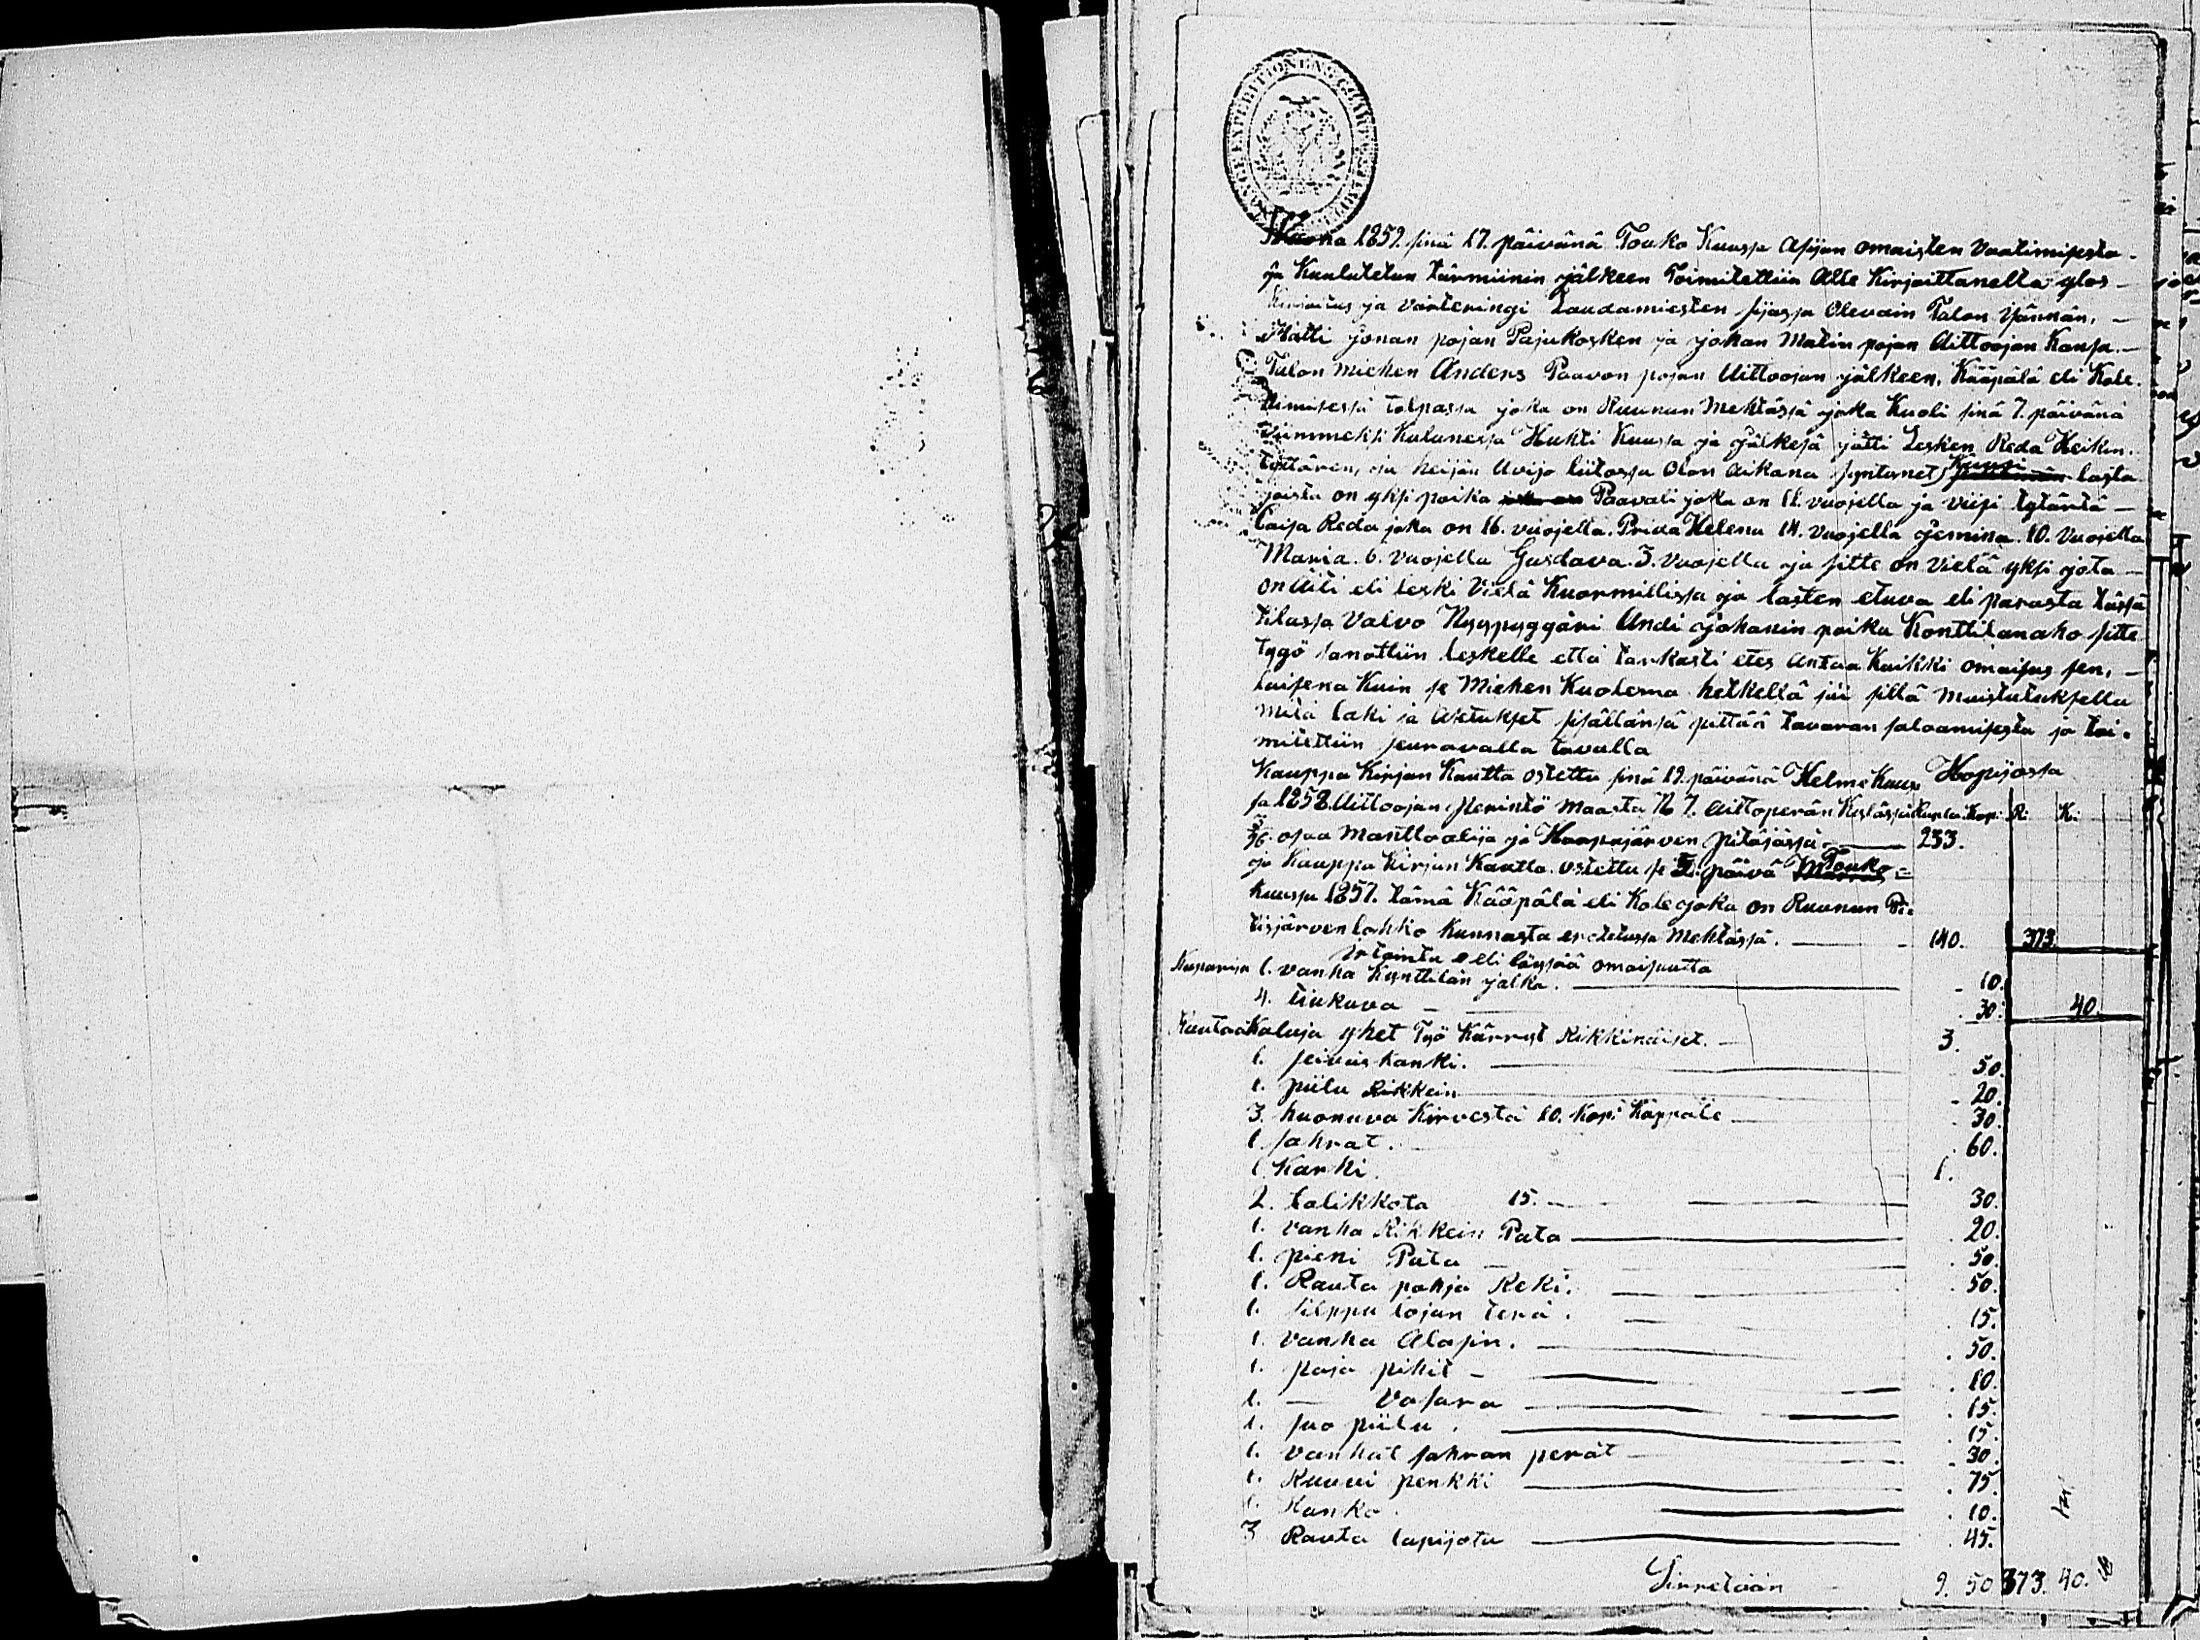 Wuona 1859. sinä 17. päivänä Touko Kuussa Asijan omaisten Vaatimisesta
ja Kuulutetun tärmiinin jälkeen Toimitettiin Alle Kirjoittanella ylös
Kirjoitus ja Värteringi Laudamiesten sijassa Olevain Talon Isännän,
Matti Jonan pojan Pajukosken ja johan Matin pojan Aittoojan Kansa.
Talon Miehen Anders Paavon pojan Aittoojan jälkeen, Kääpälä eli Kole
nimisessä tolpassa joka on Ruunun Mehtässä joka Kuoli sinä 7. päivänä
Viimmeksi Kulunessa Huhti Kuussa ja jälkesä jätti Lesken Reda Heikin
tyttären, ja heijän Avijo liitossa Olon aikana syntynet Kuusi lasta
joista on yksi poika Paavali joka on 11. vuosella ja viisi tytärtä
Caisa Reda joka on 16. vuosella. Prida Helena 14. vuosella Jemina. 10. Vuosella
Maria. 6. vuosella Gustava. 3. Vuosella ja sitte on vielä yksi jota
on äiti eli leski Vielä Kuormillisa ja lasten etuva eli parasta tässä
tilassa Valvo Nyypyggäri Andi Johanin poika Konttilanaho sitte
työ sanottiin leskelle että tarkasti etes Antaa Kaikki omaisus sen,
laisena Kuin se Miehen Kuolema hetkellä jäi sillä Muistutuksella
mitä laki ja Asetukset sisällänsä pittää tavaran salaamisesta ja toi-
mitettiin seuravalla tavalla
Kauppa Kirjan Kautta ostettu sinä 19. päivänä Helme Kuus Hopijossa
sa 1852. Aittoojan perintö maasta N 7. Aittoperän Kylässä Rupla Kopi R. K:
3/76 osaa Manttaalija ja Haapajärven pitäjässä 233.
ja Kauppa Kirjan Kautta ostettu se päivä Touko
kuussa 1857. tämä Kääpälä eli Kole joka on Ruunun Pi-
tisjärven lohko Kunnasta erotetussa Mehtässä. 140. 373.
irtainta eli löysää omaisuutta
Kuparija 1. vanha Kynttilän jalka. 10.
4. tiukuva 30. 40.
Rautaa Kaluja yhet Työ Kärryt Rikkinäiset. 3.
1. seiväs kanki. 50.
1. piilu Rikkein 20.
3. huonuva Kirvestä 10. Kopi Käppäle 30.
1. sahrat. 60.
1. Kanki. 1.
2. talikkota 15. 30.
1. vanha Rikkein Pata 20.
1. pieni Pata 50.
1. Rauta pohja Reki. 50.
1. silppu lojan terä. 15.
1. vanha Alasin. 50.
1. paja pihit 10.
1. — Vasara 15.
1. suo piilu. 15.
1. vanhat sahran perät 30.
1. Ruuvi penkki 75.
1. Hanko 10.
3 Rauta lapijota 45.
Siirretään 9. 50 373. 40.